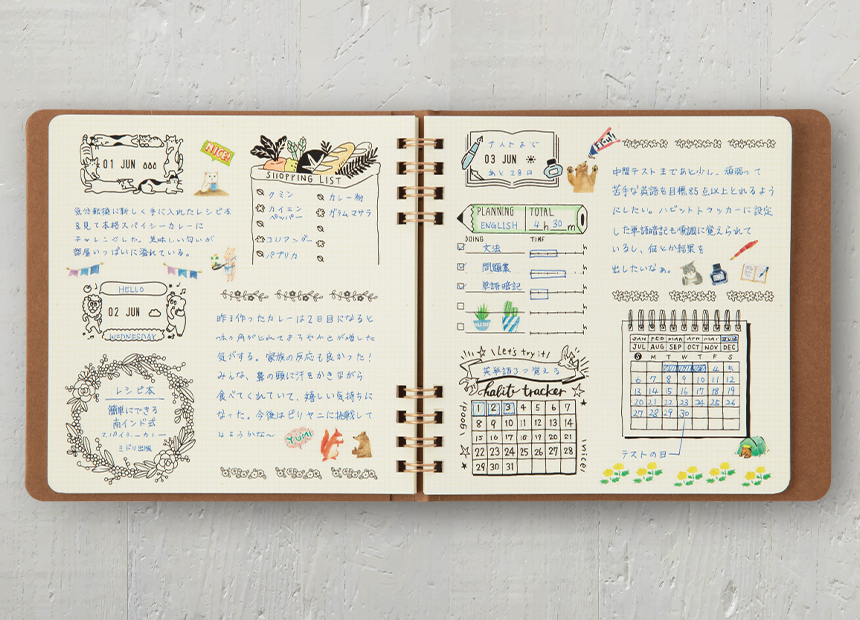 01 JUN
NICE!
気分転換に新しく手に入れたレシピ本
を見て本格スパイシーカレーに
チャレンジした。美味しい匂いが
部屋いっぱいに溢れている。
SHOPPING LIST
クミン
カイエン
ペッパー
コリアンダー
パプリカ
カレー粉
ガラムマサラ
HELLO
02 JUN
WEDNESDAY
レシピ本
簡単にできる
南インド式
スパイスカレー
ミドリ出版
昨日作ったカレーは2日目になると
味の角がとれてまろやかさが増した
気がする。家族の反応も良かった!
みんな、鼻の頭に汗をかきながら
食べてくれていて、嬉しい気持ちに
なった。今後はビリヤニに挑戦して
みようかな〜
YUM!
テストまで
03 JUN
あと28日
Fight!
中間テストまであと少し。頑張って
苦手な英語を目標85点以上とれるよう
にしたい。ハビットトラッカーに設定
した単語暗記も順調に覚えられて
いるし、何とか結果を
出したいなぁ。
PLANNING
ENGLISH
TOTAL
4h 30m
DOING
TIME
文法
問題集
単語暗記
Let's try it!
英単語3つ覚える
habit tracker
GOOD!
NICE!
1 2 3 4 5 6 7
8 9 10 11 12 13 14
15 16 17 18 19 20 21
22 23 24 25 26 27 28
29 30 31
JAN FEB MAR APR MAY JUN
JUL AUG SEP OCT NOV DEC
S M T W T F S
1 2 3 4 5
6 7 8 9 10 11 12
13 14 15 16 17 18 19
20 21 22 23 24 25 26
27 28 29 30
テストの日